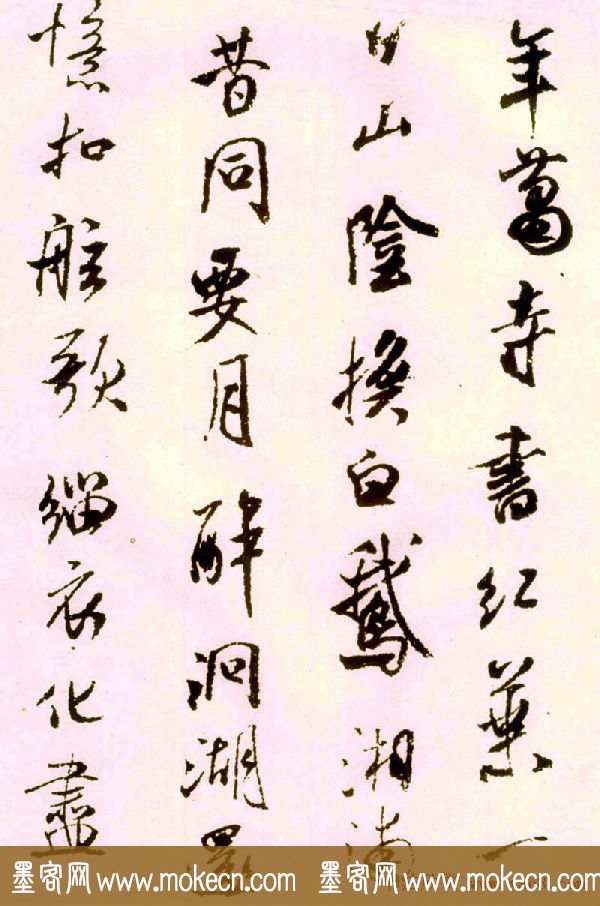 年萬寺書紅葉一
山陰換白鵝湘南
昔同要月醉洞湖還
憶扣舷歌緇衣化盡
墨客网 www.mokecn.com 墨客网 www.mokecn.com